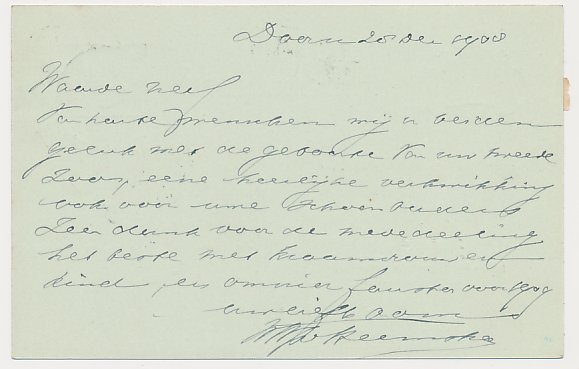 Doorn 20 Dec 1908
Waarde neef
Van harte wenschen wij u beiden
geluk met de geboorte van uw tweede
Zoon, eene heerlijke verkwikking
ook voor uwe schoonouders
Zeer dank voor de mededeeling
het beste met kraamvrouw en
kind, en omnia fausta voor 1909
uw liefh oom
Heemskerk